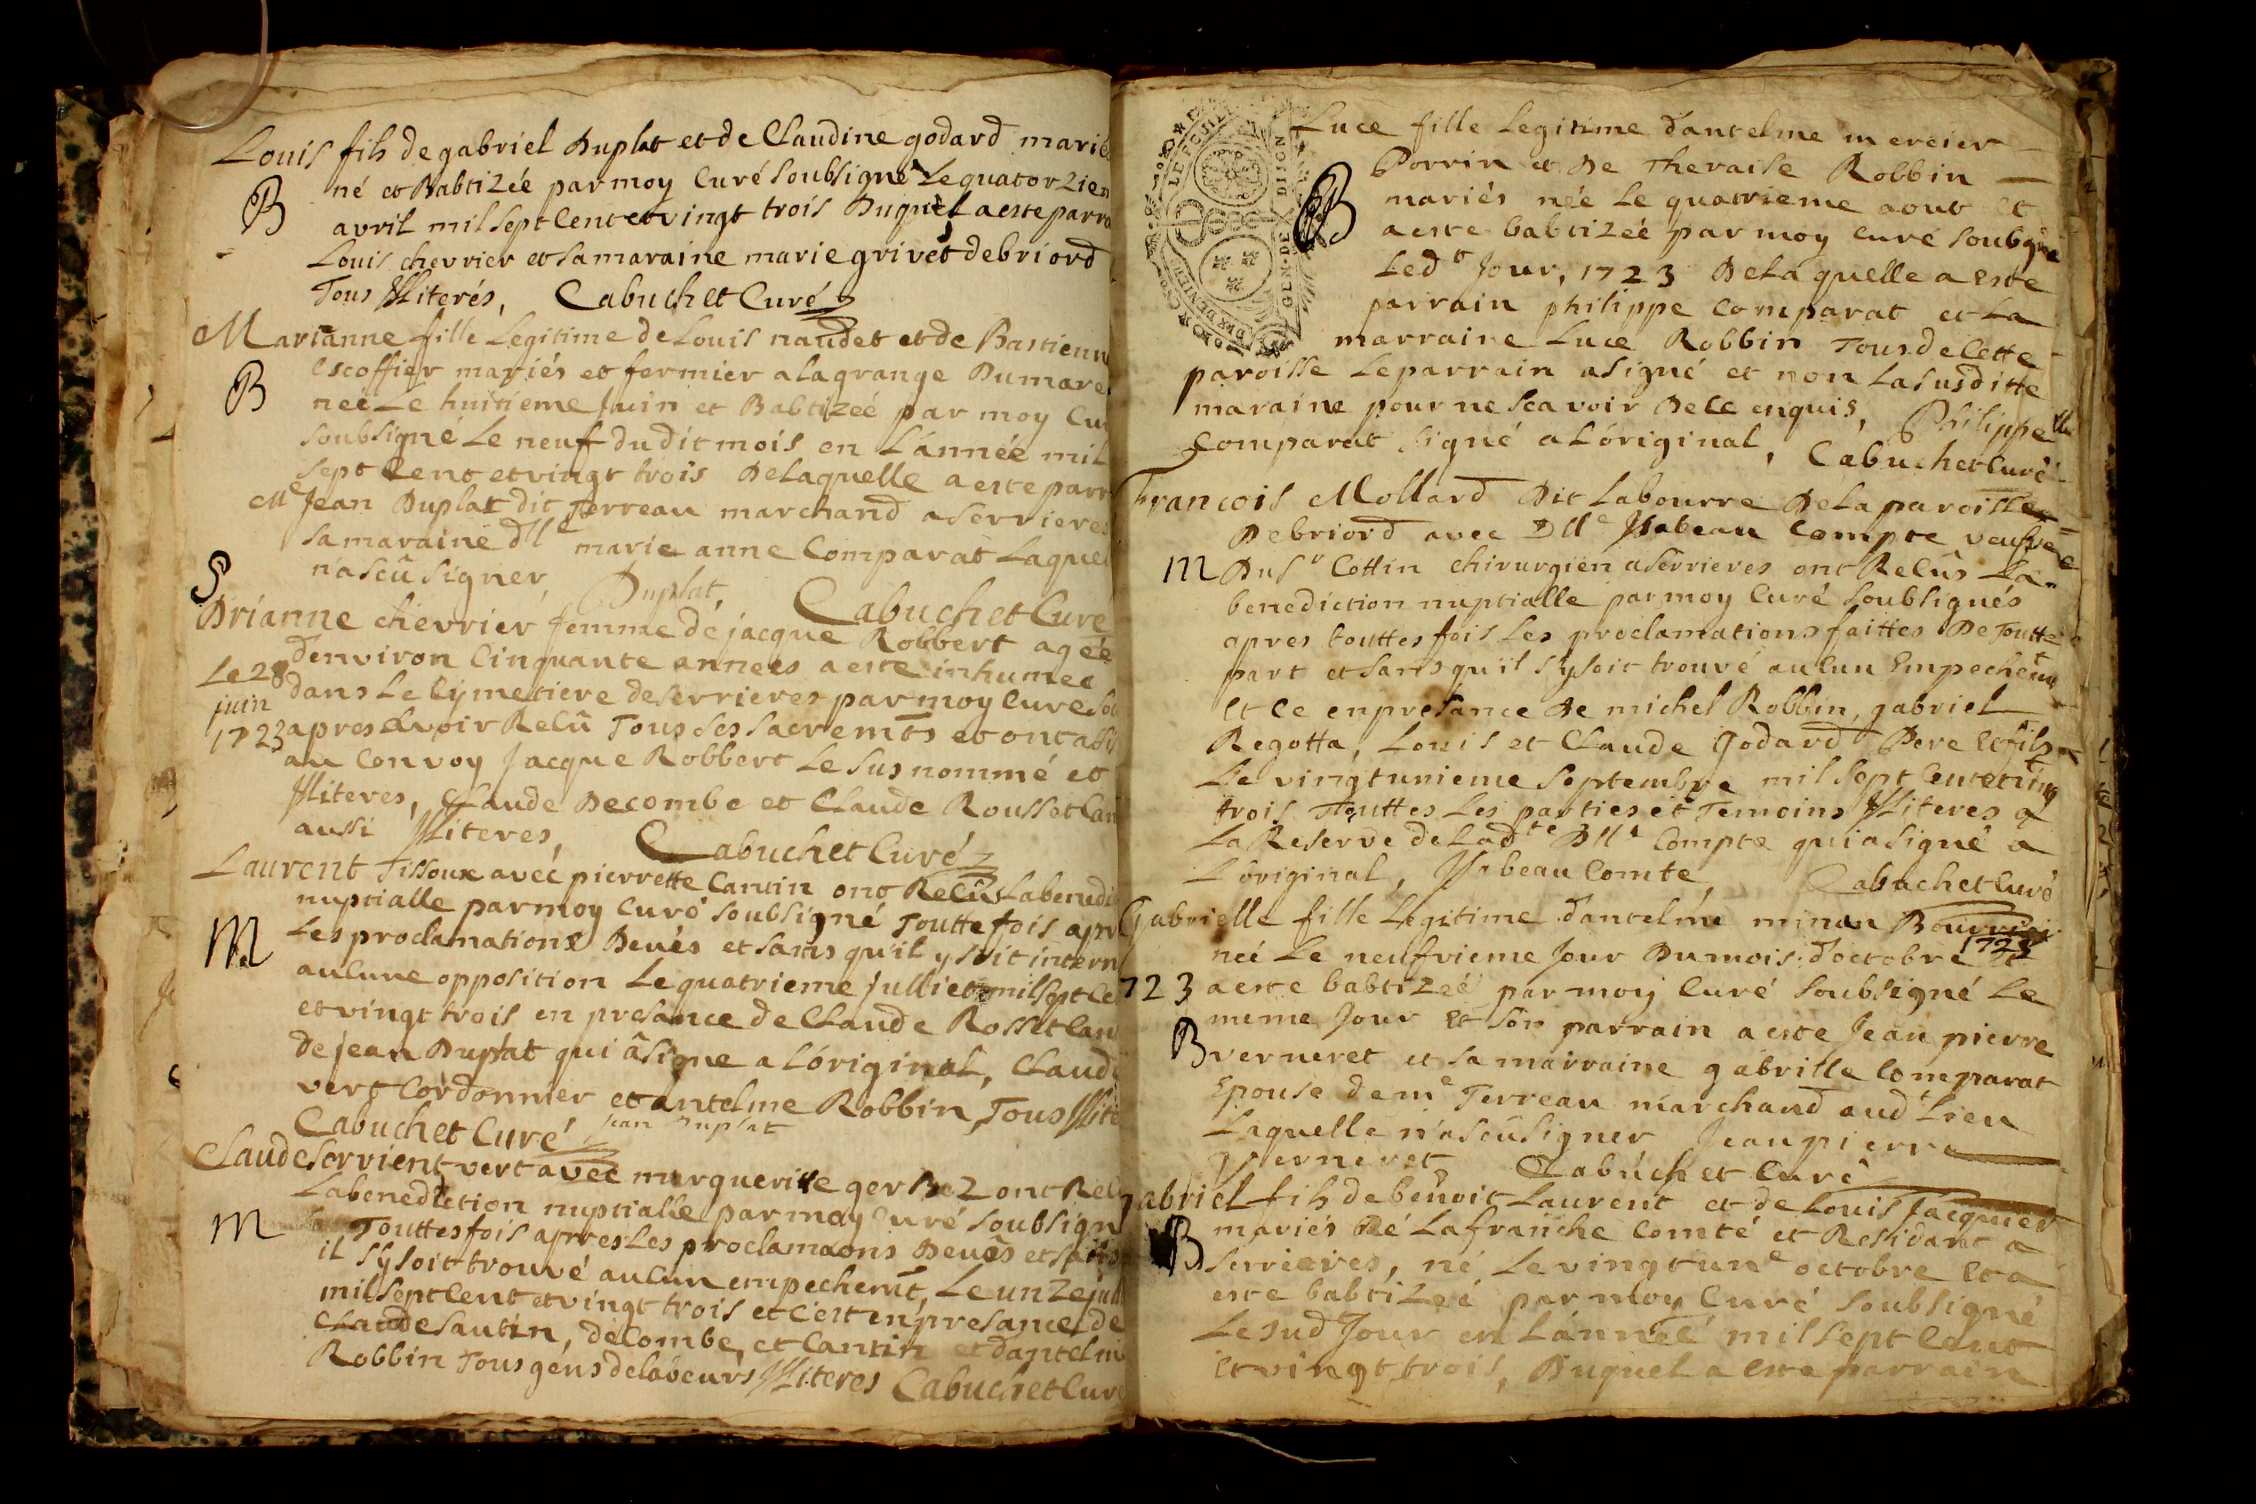 Louis fils de gabriel Duplat et de Claudine godard mariés
B
né et Babtizée par moy Curé soubsigné Le quatorzien
avril mil sept Cent et vingt trois Duquel a este parra
Louis chevrier et sa maraine marie grivet de briord
Tous Illiterés, Cabuchet Curé
Marianne fille Legitime de Louis naudet et de Bastienne
B
escoffier mariés et fermier a la grange Dumare
neé Le huitieme Juin et Babtizeé par moy Cu
soubsigné Le neuf du dit mois en L'année mil
sept Cent et vingt trois De Laquelle a este parr
Me Jean Duplat dit Terreau marchand a serrieres
sa maraine dlle marie anne Comparat Laquel
na sceu signer, Duplat, Cabuchet Curé
S
Drianne chevrier femme de jacque Robbert ageé
denviron Cinquante annees a este inhumee
Le 28
juin
1723
dans Le Cymetiere de serrieres par moy Cure sou
apres avoir Recû Tous ses sacremts et ont assi
au Convoy Jacque Robbert Le susnommé et
Illiteres, Claude Decombe et Claude Rousset Can
aussi Illiteres, Cabuchet Curé
Laurent Tissoux aveć pierrette Cantin ont Recûs La benedi
nuptialle par moy Curé soubsigné Touttefois apr
M
Les proclamations Deués et sans qu'il y soit interv
aucune opposition Le quatrieme Julliet mil sept Ce
et vingt trois en presance de Claude Rosset Can
de jean Duplat qui a signe a L'original, Claude
vert Cordonnier et antelme Robbin, Tous Illite
Cabuchet Curé Jean Duplat
Claude servient vert avec margueritte gerbez ont Recu
La benediction nuptialle par moy Curé soubsign
M
Touttesfois apres Les proclamaons Deuês et sans
il s'y soit trouvé aucun empechemt, Le unze jul
mil sept Cent et vingt trois et c'est en presance de
Claude sautin, de Combe, et Cantin et d'antelm
Robbin Tous gens de labeurs Illiteres Cabuchet Cure
GEN·DE DIJON
Luce fille Legitime d'antelme mercier
Porrin et De Theraise Robbin
B
mariés née Le quatrieme aout et
a este babtizeé par moy Curé soubgné
Ledt Jour, 1723 De Laquelle a este
parrain philippe Comparat et La
marraine Luce Robbin Tous de Cette
paroisse Le parrain a signé et non La susditte
maraine pour ne scavoir De Ce enquis, Philippe
Comparat signé a L'original, Cabuchet Curé
François Mollard Dit Labourre De La paroisse
De briord avec Dlle Isabeau Compte veufve
M
Du sr Cottin chirurgien a serrieres ont Recûs La
benediction nuptialle par moy Curé soubsignés
apres touttesfois Les proclamations faittes De Toutte
part et sans qu'il s'y soit trouvé aucun Empechemt
et Ce en presance De michel Robbin, gabriel
Regotta, Louis et Claude Godard Pere et fils
Le vingtunieme septembre mil sept Cent et vingt
trois Touttes Les parties et Temoins Illiteres a
La Reserve de Ladte Dlle Compte qui a signé a
L'original, Isabeau Comte, Cabuchet Curé
Gabrielle fille Legitime d'antelme
neé Le neufvieme Jour Du mois d'octobre 1723 et
723
a este babtizeé par moy Curé soubsigné Le
meme Jour et son parrain a este Jean pierre
B
verneret et sa marraine gabrille Comparat
Epouse de me Terreau marchand audt Lieu
Laquelle n'a sceu signer Jean pierre
Verneret Cabuchet Curé
gabriel fils de benoit Laurent et de Louis Jacquier
B
mariés De La franche Comté et Residant a
serrieres, né Le vingtune octobre et a
este babtizeé par moy Curé soubsigné
Le sud Jour en L'année mil sept Cent
et vingt trois, Duquel a este parrain